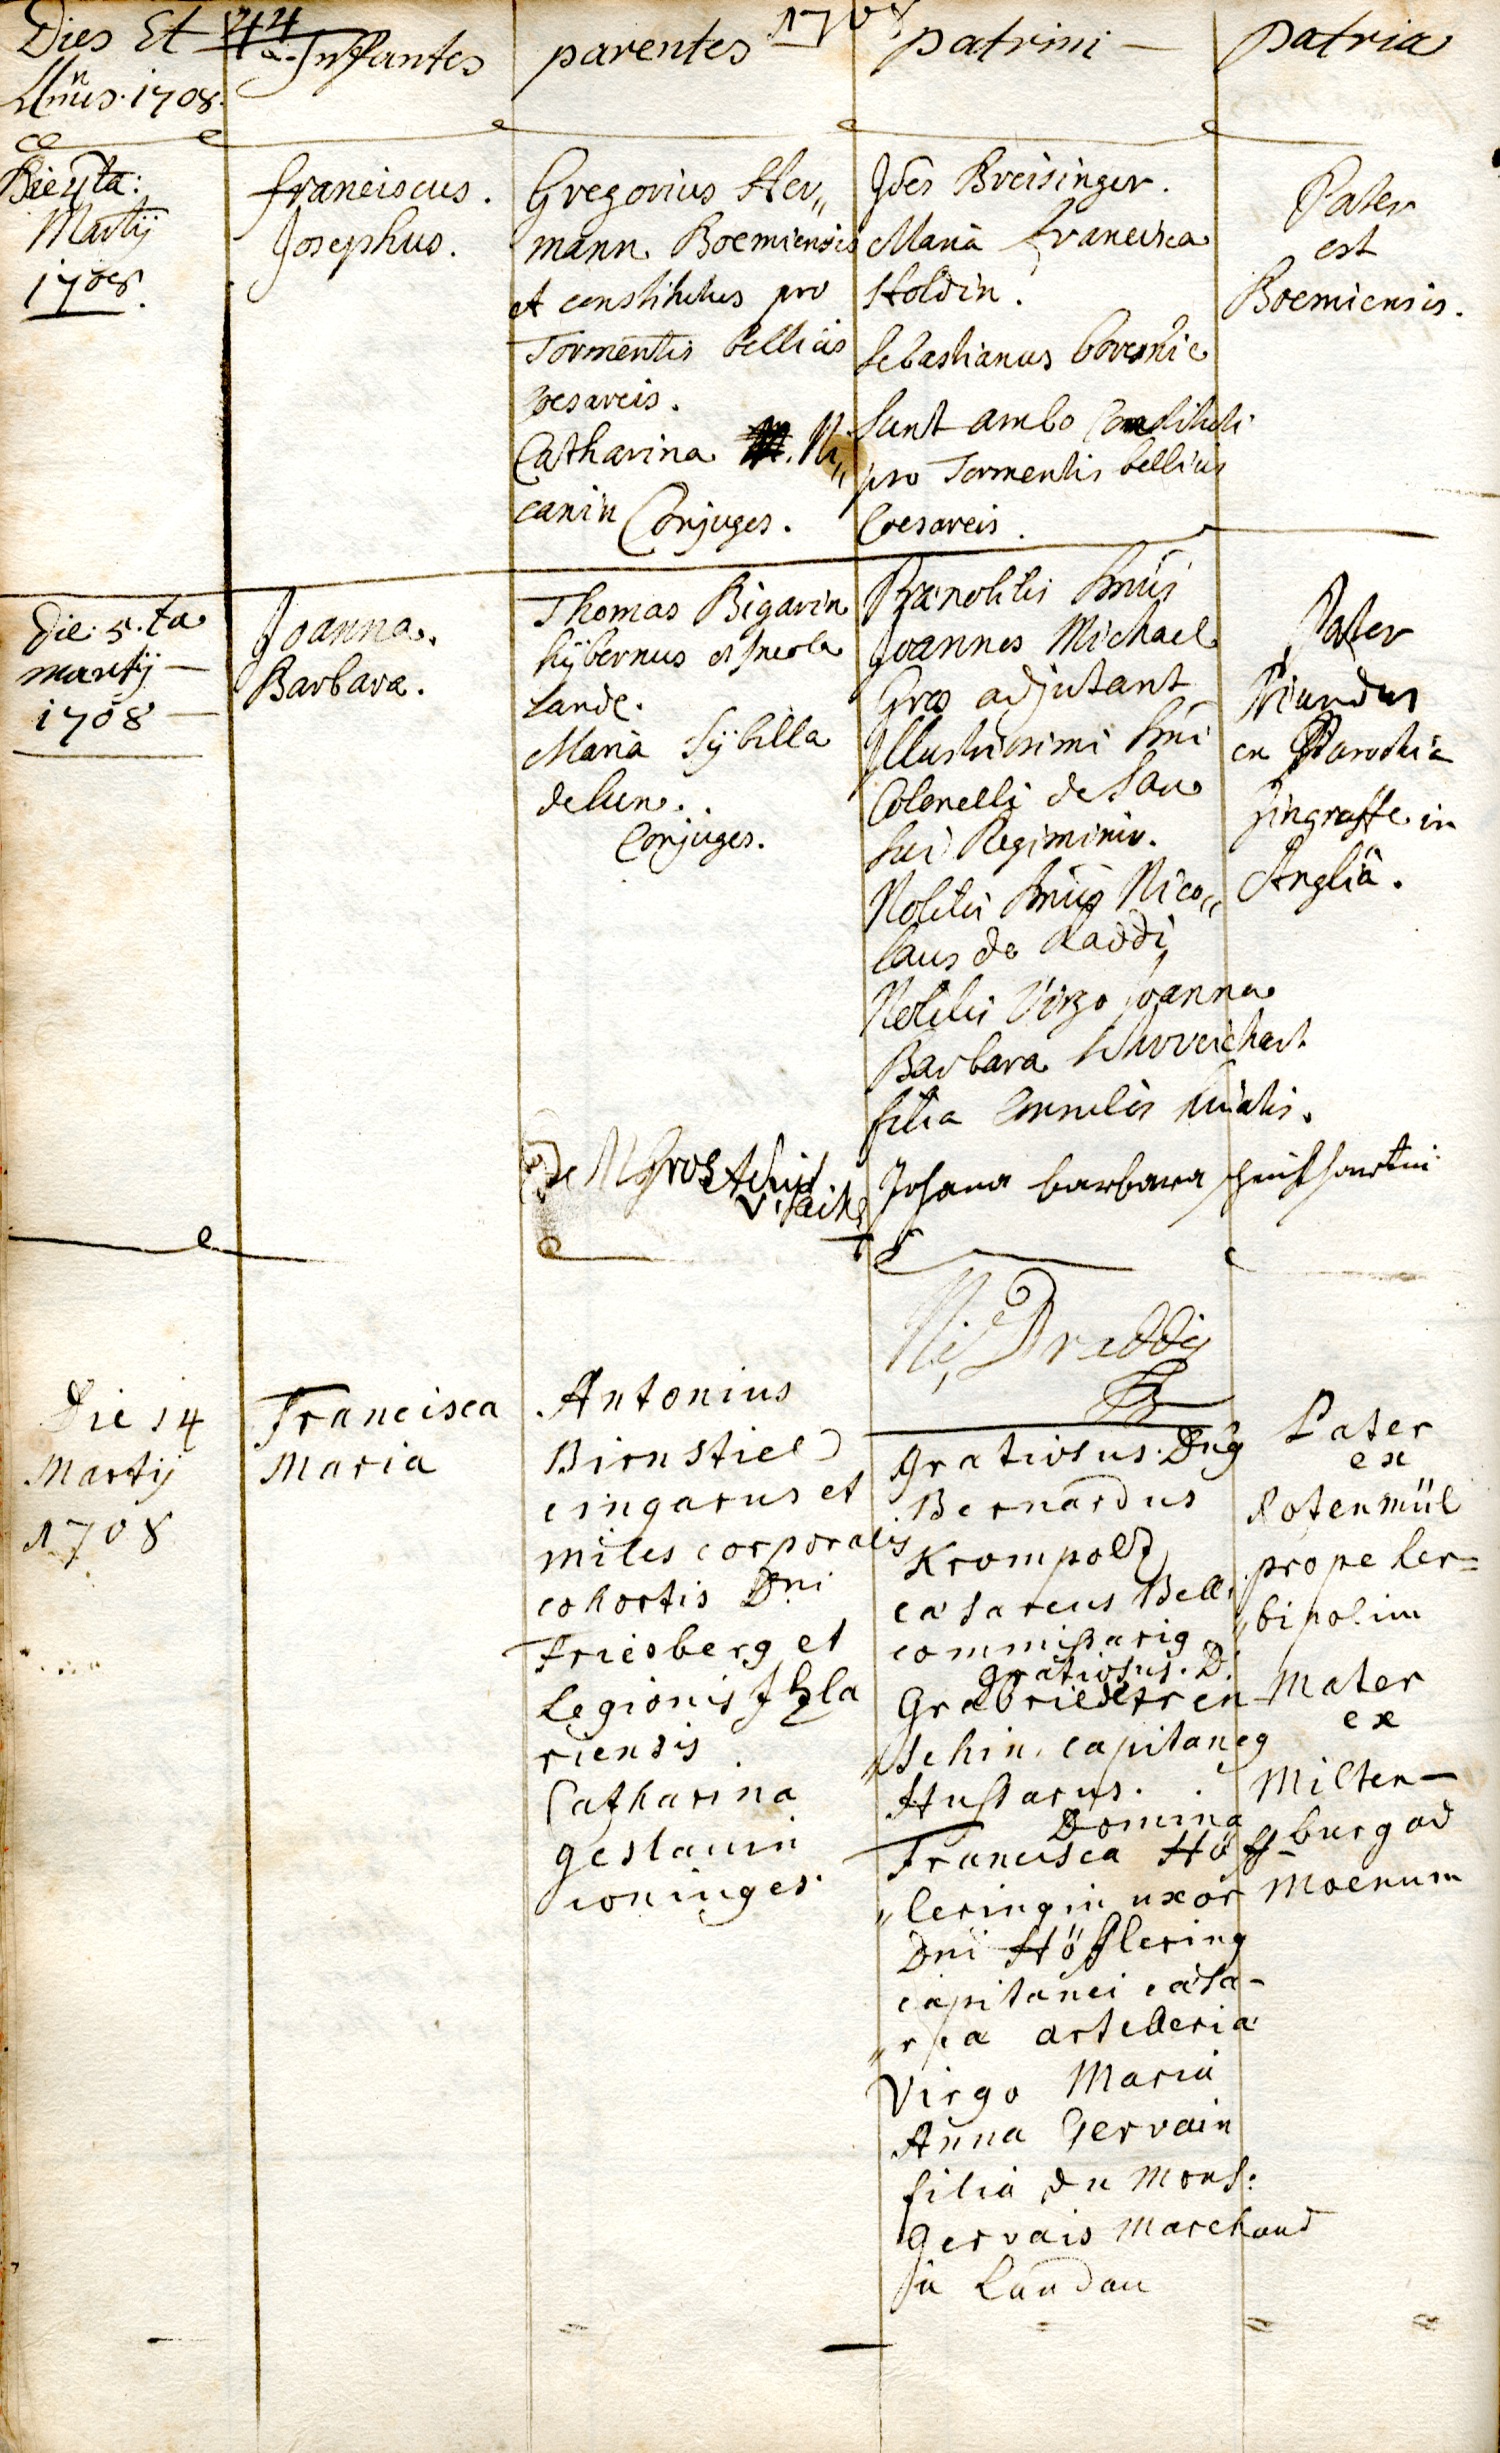 44
1708
Dies Et
Annus. 1708.
Infantes
parentes
patrini
patria
Die 4ta:
Martij
1708.
Franciscus.
Josephus.
Gregorius Her„
mann Boemiensis
et constitutus pro
Tormentis bellicis
coesareis.
Catharina Ni„
canin Conjuges.
Joes Breisinger.
Maria Francisca
Holdin.
Sebastianus
Sunt ambo Constituti
pro Tormentis bellicis
Coesareis.
Pater
est
Boemiensis.
Die 5.ta
martij
1708
Joanna.
Barbara.
Thomas Bigarin
hÿbernus et Incola
Landc.
Maria Sÿbilla
delun.
Conjuges.
Praenobilis Dnus
Joannes Michael
Gros adjutant
Illustrissimi Dni
Colonelli de
sui Regiminis.
Nobilis Dnus Nico„
laus de Raddi
Nobilis Virgo Joanna
Barbara
filia Consulis
Pater
ex Parochia
in
Anglia.
Johana barbara
Die 14
Martij
1708
Francisca
Maria
Antonius
Birnstiel
cingarus et
miles corporalis
cohortis Dni
Friesberg et
Legionis
riensis
Catharina
geslauin
coniuges.
Gratiosus Dng
Bernardus
Krompolt
caesareus Belli
commissarig
Gratiosus. D.
schin. capitaneg
Hussarus.
Domina
Francisca Höff
„leringin uxor
Dni Höfflering
capitanei caesa-
„rea artelleria
Virgo Maria
Anna Gervain
filia du Mons:
Gervais Marchand
a Landau
Pater
ex
Rotenmül
prope her=
„bipolim
Mater
ex
Milten-
burg ad
Moenum